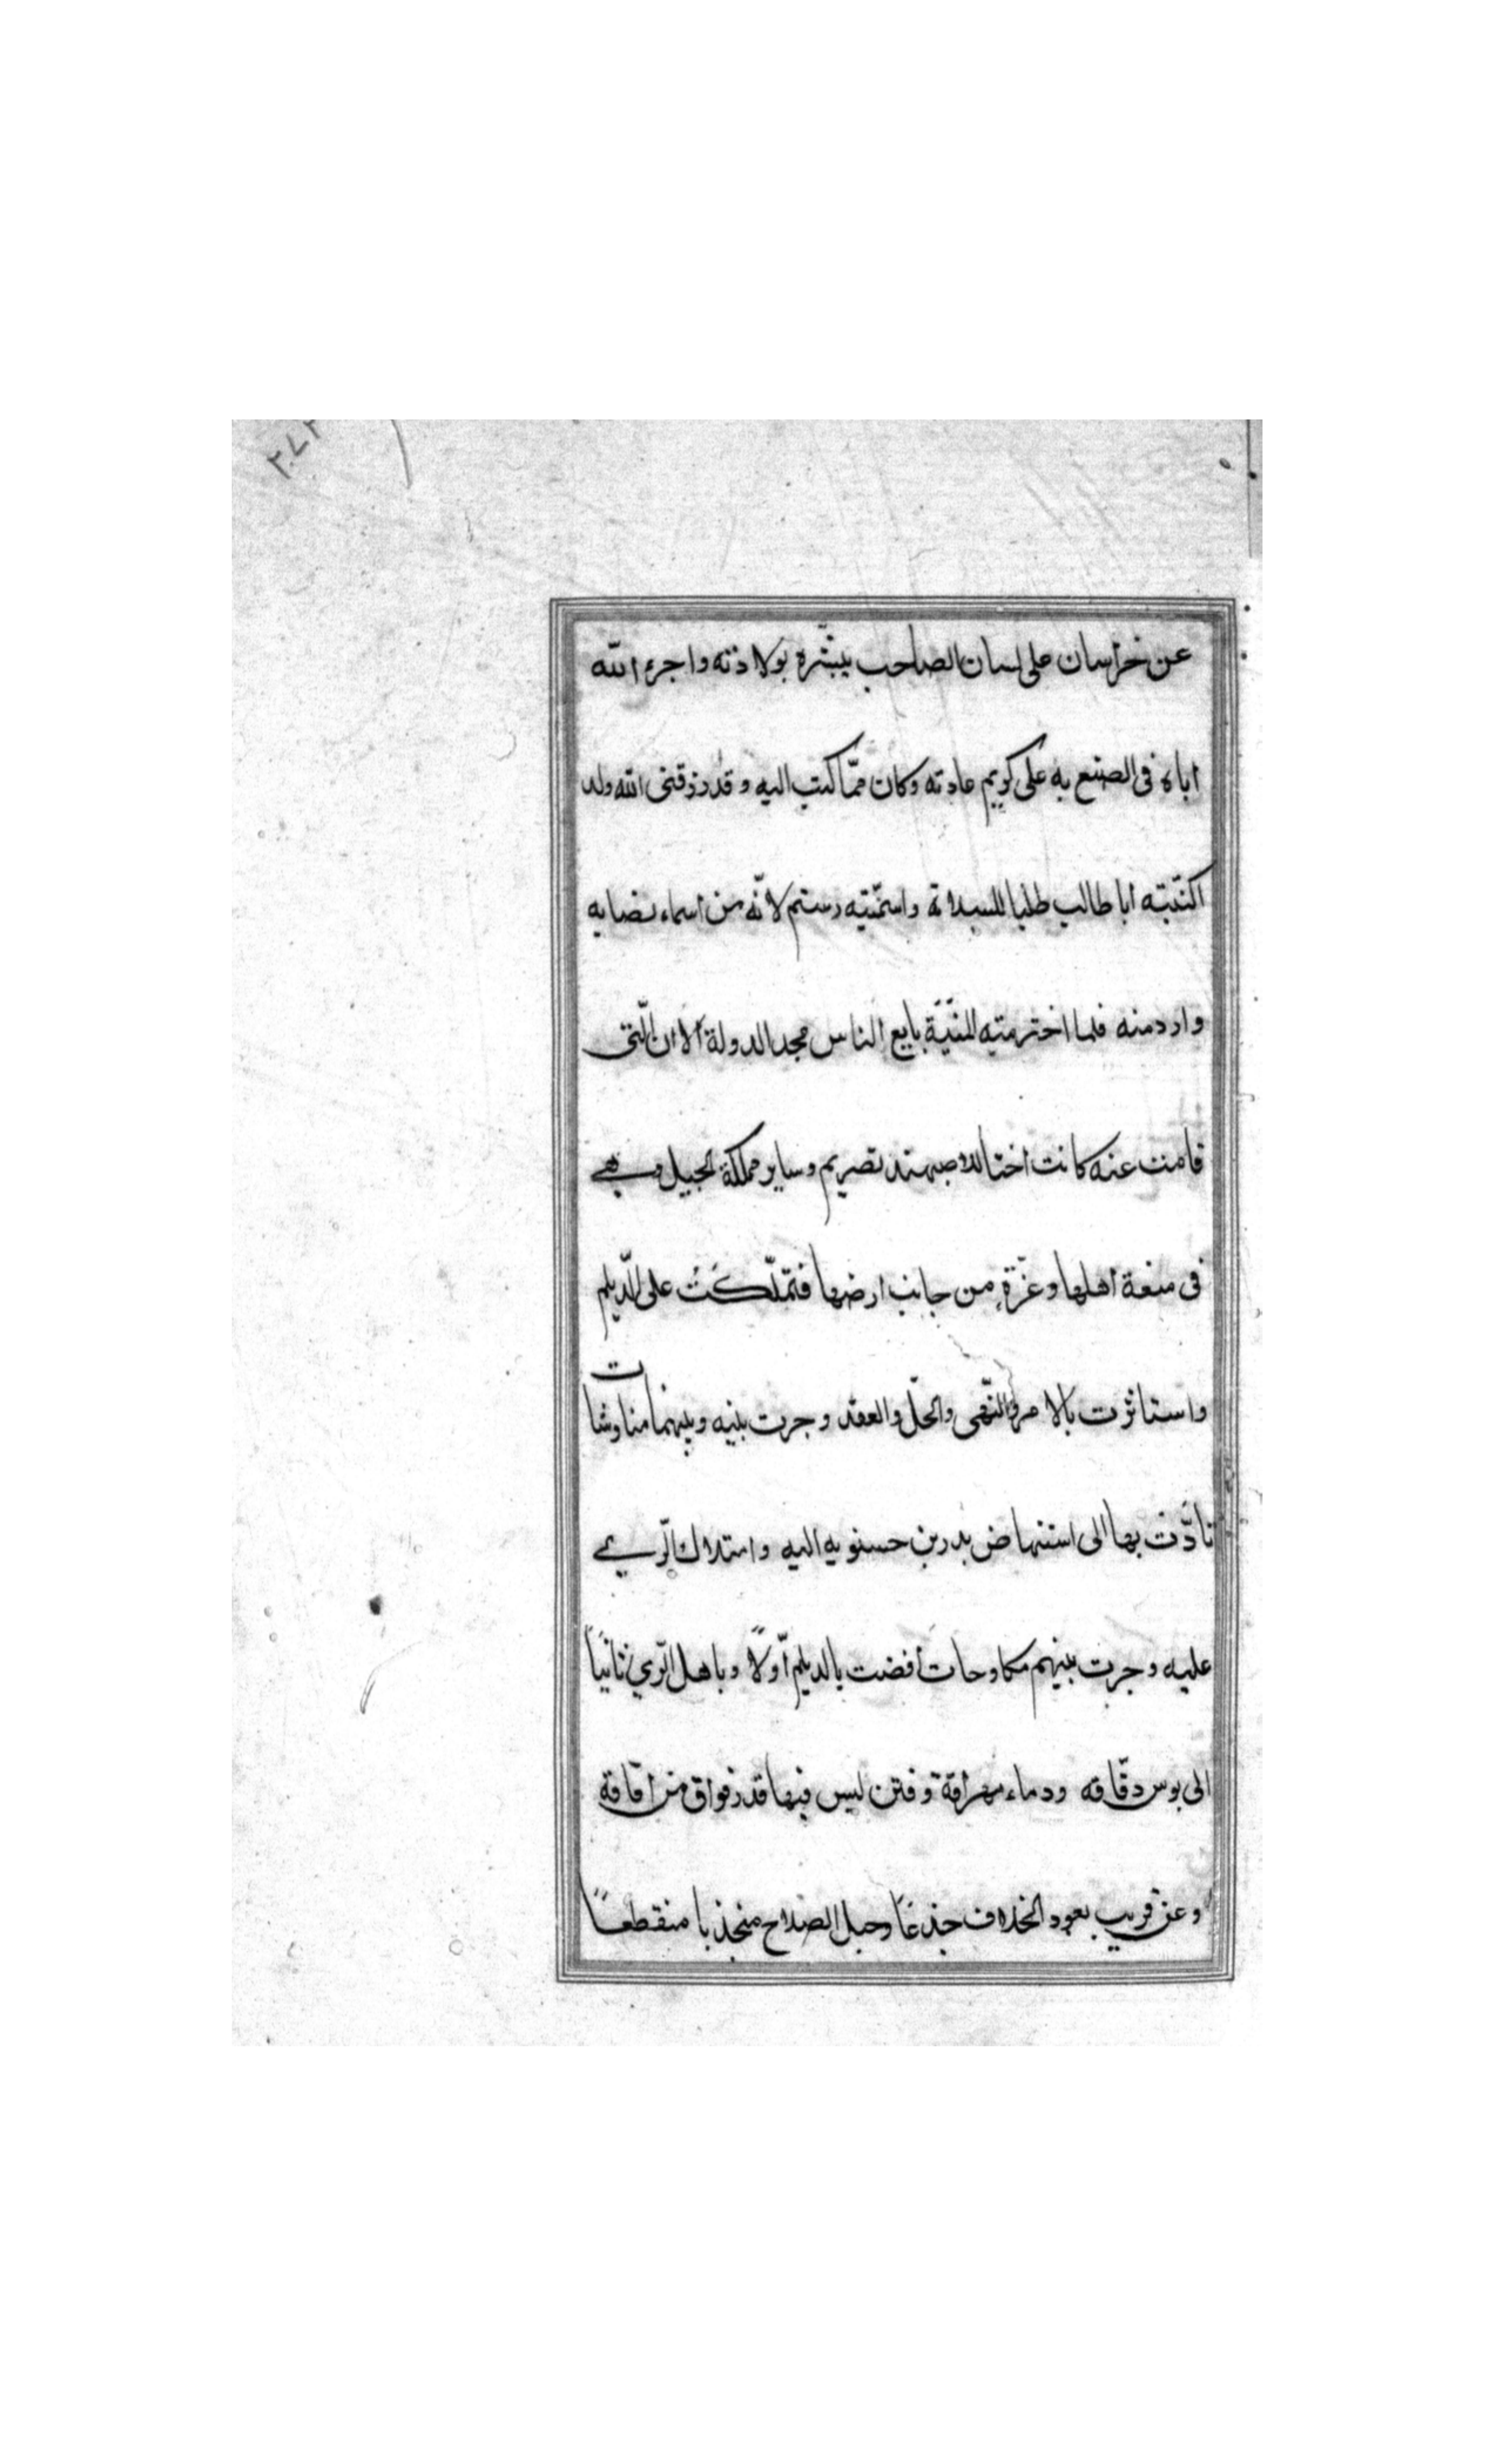 عن خراسان على لسان الصاحب يبشّره بولادته واجراء الله
اباه فى الصنع به على كريم عادته وكان ممّا كتب اليه وقد رزقنى الله ولد
اكنّيته ابا طالب طلبا للسلامة واسمّيته رستم لانّه من اسماء نصابه
وارد منه فلما اخترمتيه المنيّة بايع الناس مجد الدولة الا ان الّتى
قامت عنه كانت اختا للاصبهبذ بفريم وساير مملكة الجبيل وهى
فى منعة اهلها وعزّةٍ من جانب ارضها فتملّكَتْ على الدّيلم
واستاثرت بالامر والنّهى والحلّ والعقد وجرت بينه وبينهما مناوشات
تادّت بها الى استنهاض بدر بن حسنويه اليه واستلاك الرّى
عليه وجرت بينهم مكاوحات أفضت بالديلم أوّلًا وباهل الرّي ثانيًا
الى بوس دقّاقه ودماء مهراقة وفتن ليس فيها قدر فواق من افاقة
وعن قريب يعود الخلاف جذعًا وحبل الصلاح منجذبا منقطعًا